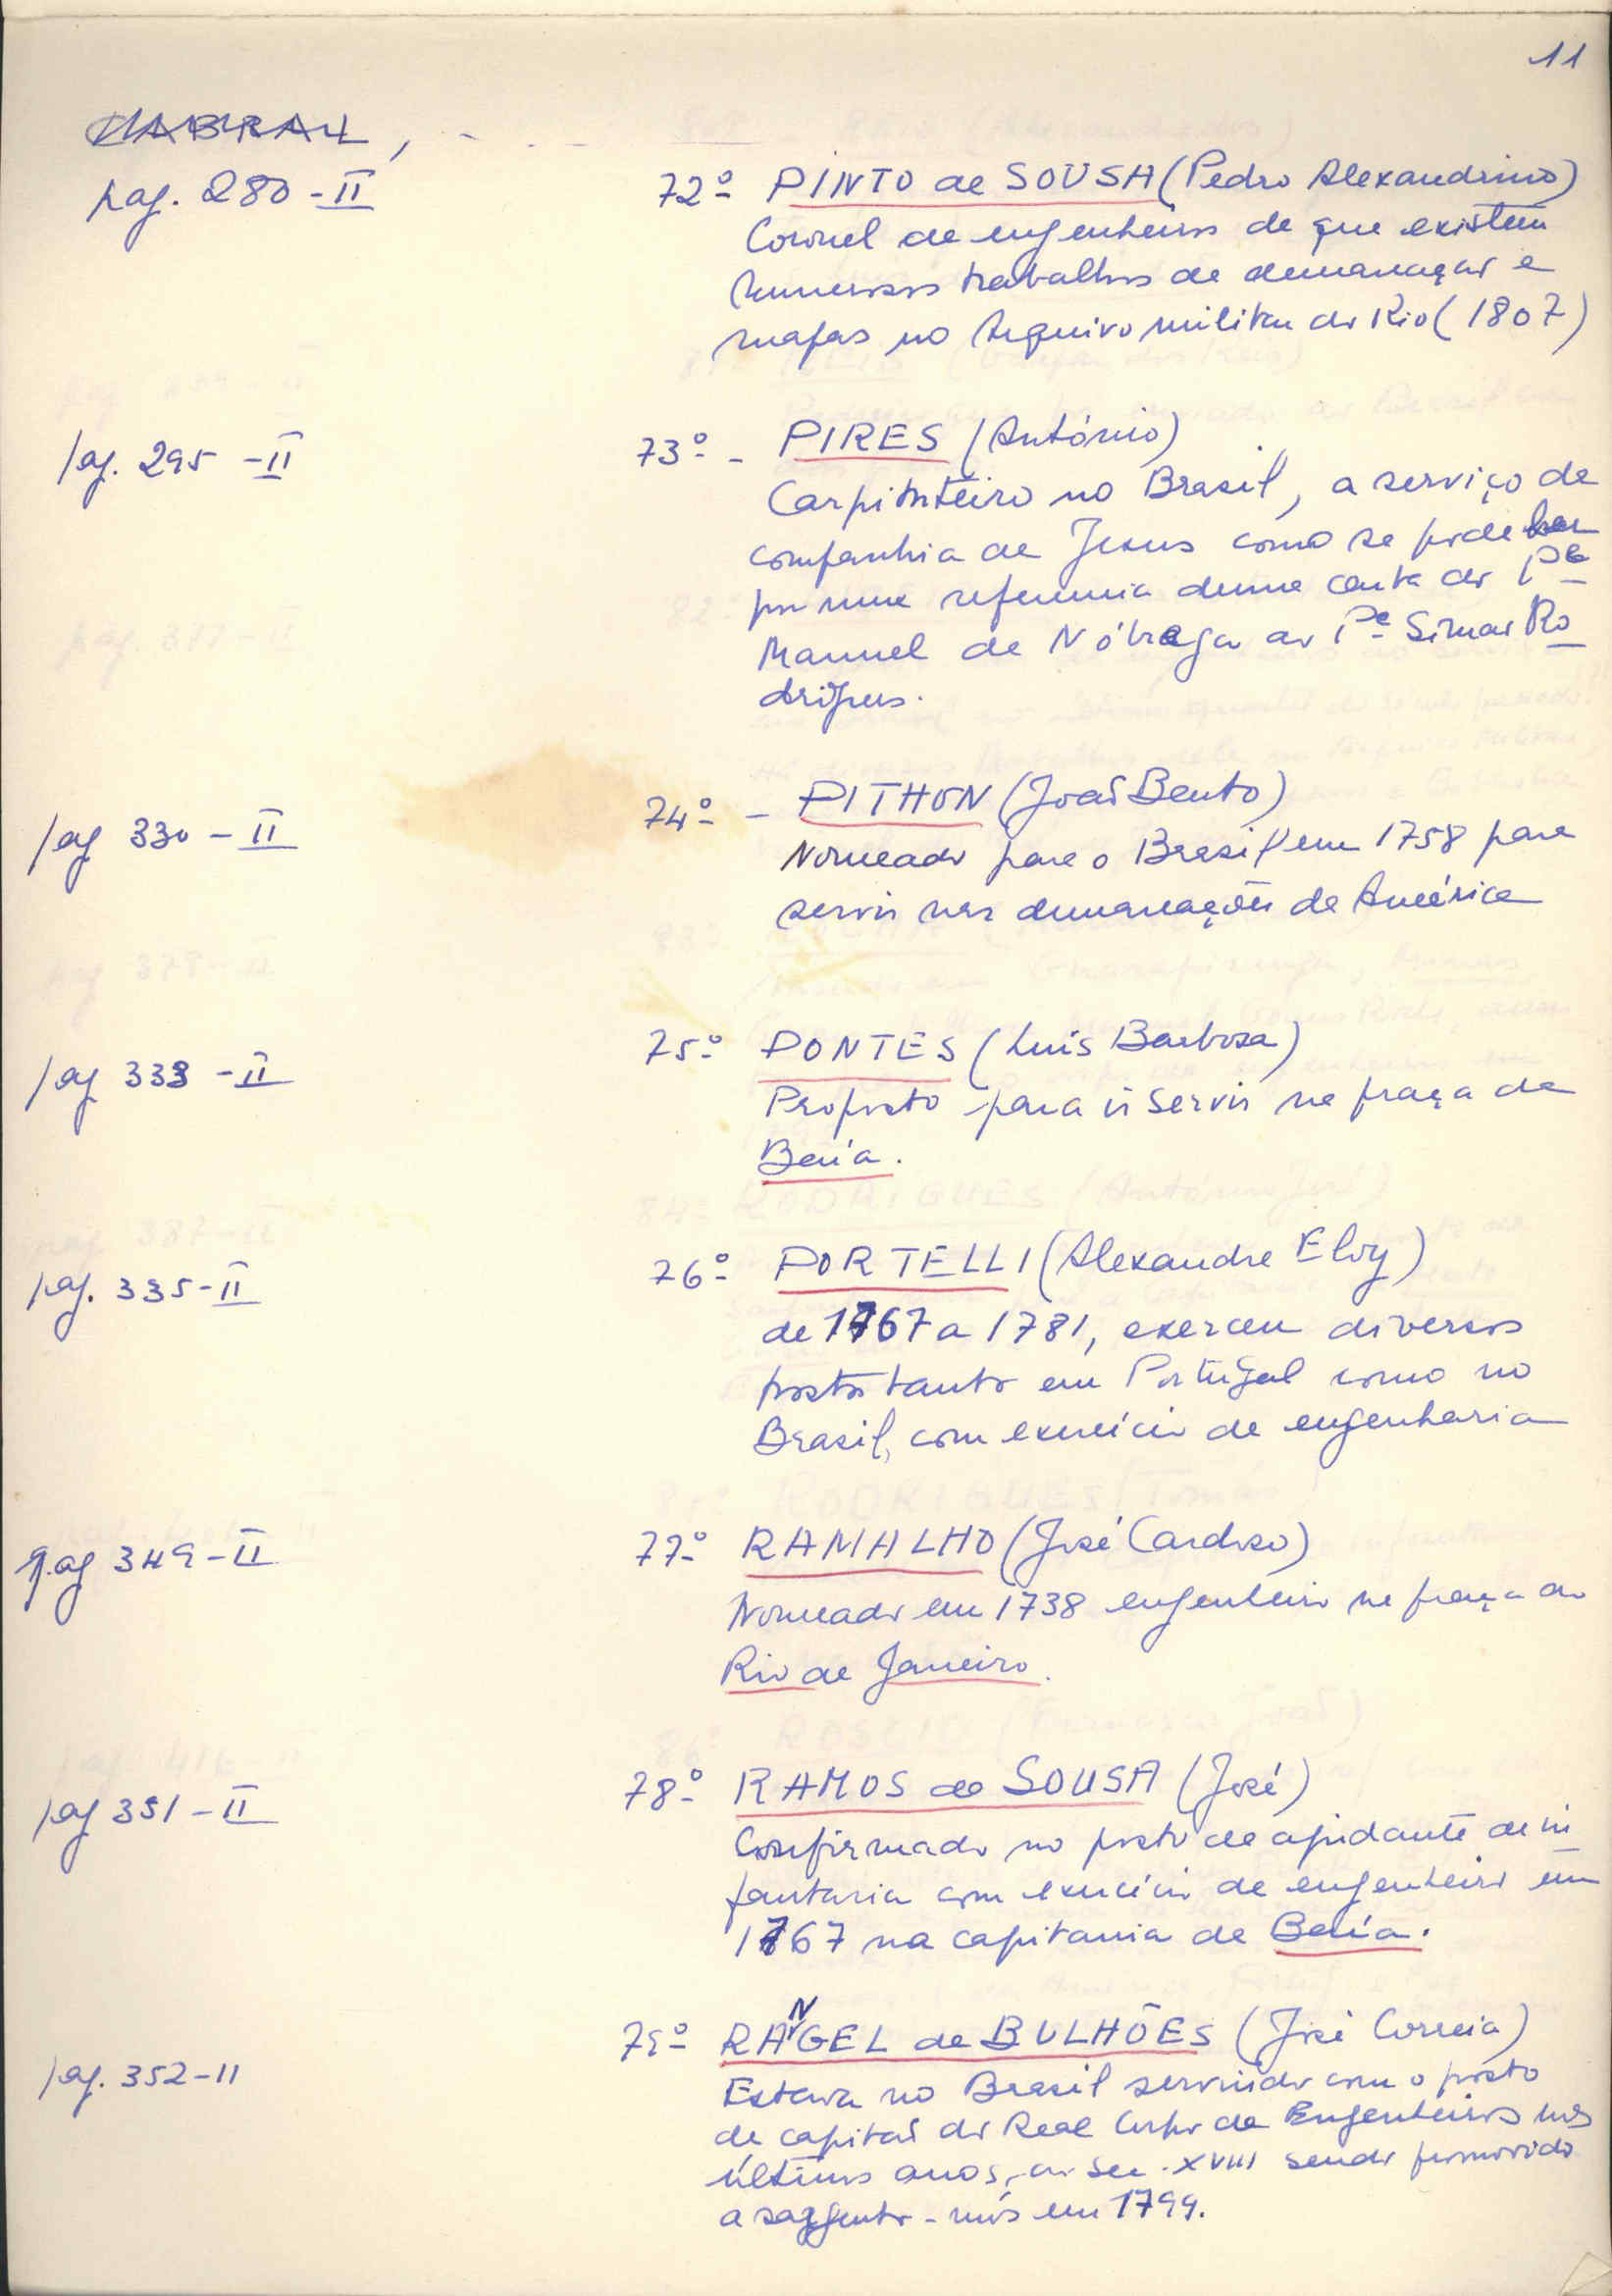 11
CABRAL,
pag. 280-II
72º PINTO de SOUSA (Pedro Alexandrino)
Coronel de engenheiros de que existem
numerosos trabalhos de demarcação e
mapas no Arquivo militar do Rio (1807)
pag. 295-II
73º - PIRES (António)
Carpinteiro no Brasil, a serviço da
companhia de Jesus como se pode
por uma referencia duma carta do Pe
Manuel de Nóbrega ao Pe Simão Ro
drigues.
pag 330-II
74º - PITHON (João Bento)
Nomeado para o Brasil em 1758 para
servir nas demarcações da América
pag 333-II
75º PONTES (Luís Barbosa)
Proposto para ir servir na praça da
Baía.
pag. 335-II
76º PORTELLI (Alexandre Eloy)
de 1767 a 1781, exerceu diversos
postos tanto em Portugal como no
Brasil, com exercício de engenharia
pag 349-II
77º RAMALHO (José Cardoso)
Nomeado em 1738 engenheiro na praça do
Rio de Janeiro.
pag 351-II
78º RAMOS de SOUSA (José)
Confirmado no posto de ajudante de in
fantaria com exercício de engenheiro em
1767 na capitania da Baía.
pag. 352-II
79º RANGEL de BULHÕES (José Correia)
Estava no Brasil servindo com o posto
de capitão do Real Corpo de Engenheiros nos
últimos anos do Sec. XVIII sendo promovido
a sargento-mór em 1799.